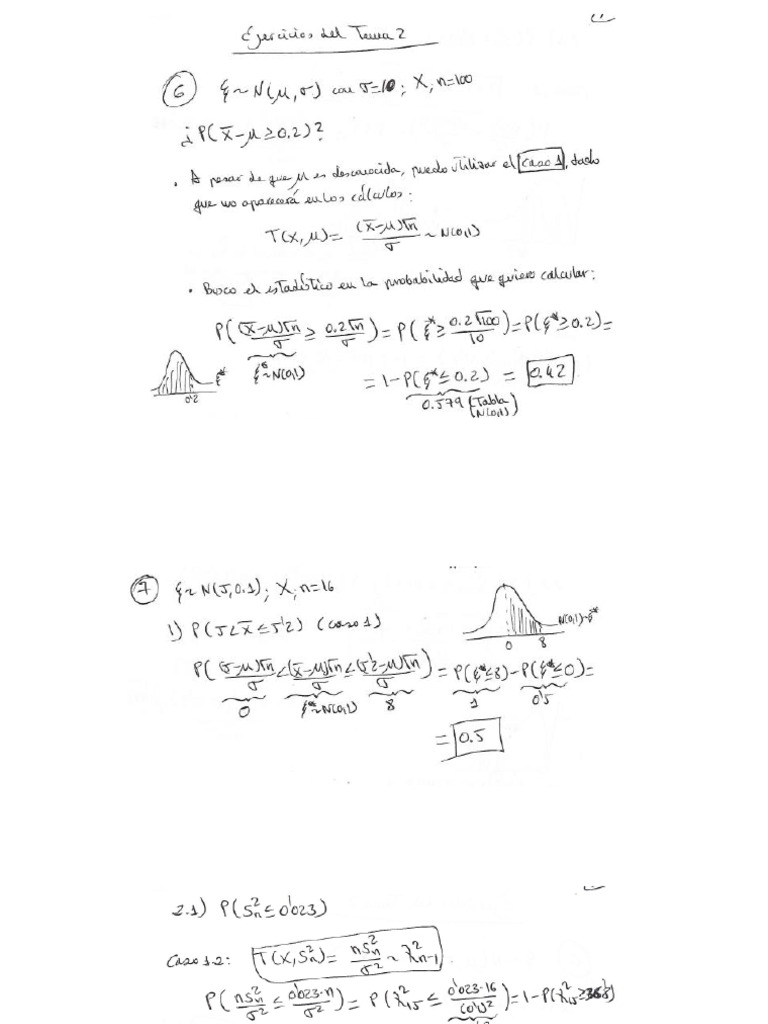 Ejercicios del Tema 2
⑥ ξ ~ N(μ, σ) con σ=10; X, n=100
¿P(X̄-μ ≥ 0.2)?
· A pesar de que μ es desconocida, puedo utilizar el caso 1, dado
que no aparecerá en los cálculos:
T(X, μ) = (X̄-μ)√n / σ ~ N(0,1)
· Busco el estadístico en la probabilidad que quiero calcular:
P((X̄-μ)√n / σ ≥ 0.2√n / σ) = P(ξ* ≥ 0.2√100 / 10) = P(ξ* ≥ 0.2) =
ξ* ~ N(0,1)
ξ*
0.2
= 1 - P(ξ* ≤ 0.2) = 0.42
0.579 (Tabla N(0,1))
⑦ ξ ~ N(5, 0.1); X, n=16
1) P(5 < X̄ ≤ 5'2) (caso 1)
N(0,1) ~ ξ*
0 8
P((5-μ)√n / σ < (X̄-μ)√n / σ ≤ (5'2-μ)√n / σ) = P(ξ* ≤ 8) - P(ξ* ≤ 0) =
0 ξ* ~ N(0,1) 8 1 0'5
= 0.5
2.1) P(Sn² ≤ 0'023)
Caso 1.2: T(X, Sn²) = nSn² / σ² ~ χ²n-1
P(nSn² / σ² ≤ 0'023·n / σ²) = P(χ²15 ≤ 0'023·16 / (0'1)²) = 1 - P(χ²15 ≥ 36'8)